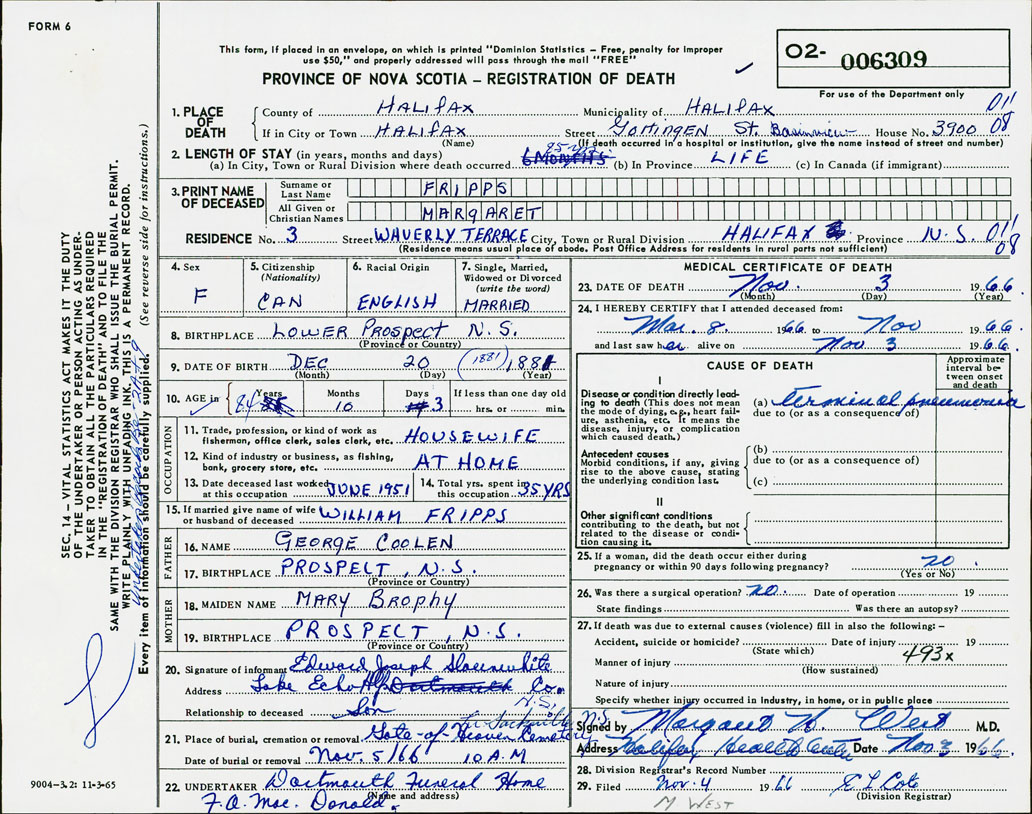 FORM 6
This form, if placed in an envelope, on which is printed "Dominion Statistics – Free, penalty for improper
use $50," and properly addressed will pass through the mail "FREE"
PROVINCE OF NOVA SCOTIA – REGISTRATION OF DEATH
02- 006309
For use of the Department only
1. PLACE OF DEATH
County of HALIFAX Municipality of HALIFAX 011
If in City or Town HALIFAX Street Gottingen St. House No. 3900 08
(Name) (If death occurred in a hospital or institution, give the name instead of street and number)
2. LENGTH OF STAY (in years, months and days)
(a) In City, Town or Rural Division where death occurred 6 MONTHS (b) In Province LIFE (c) In Canada (if immigrant)
3. PRINT NAME OF DECEASED
Surname or Last Name FRIPPS
All Given or Christian Names MARGARET
RESIDENCE No. 3 Street WAVERLY TERRACE City, Town or Rural Division HALIFAX Province N.S. 011
(Residence means usual place of abode. Post Office Address for residents in rural parts not sufficient) 08
4. Sex F
5. Citizenship (Nationality) CAN
6. Racial Origin ENGLISH
7. Single, Married, Widowed or Divorced (write the word) MARRIED
8. BIRTHPLACE LOWER PROSPECT N.S.
(Province or Country)
9. DATE OF BIRTH DEC 20 (1881) 1881
(Month) (Day) (Year)
10. AGE in Years 84 Months 10 Days 13 If less than one day old hrs. or min.
OCCUPATION
11. Trade, profession, or kind of work as
fisherman, office clerk, sales clerk, etc. HOUSEWIFE
12. Kind of industry or business, as fishing,
bank, grocery store, etc. AT HOME
13. Date deceased last worked
at this occupation JUNE 1951
14. Total yrs. spent in
this occupation 35 YRS
15. If married give name of wife
or husband of deceased WILLIAM FRIPPS
FATHER
16. NAME GEORGE COOLEN
17. BIRTHPLACE PROSPECT, N.S.
(Province or Country)
MOTHER
18. MAIDEN NAME MARY BROPHY
19. BIRTHPLACE PROSPECT, N.S.
(Province or Country)
20. Signature of informant Edward Joseph Slaunwhite
Address Lake Echo Hfx Dartmouth Co.
N.S.
Relationship to deceased Son
21. Place of burial, cremation or removal Gate of Heaven Cemetery
Date of burial or removal Nov. 5/66 10 A.M
22. UNDERTAKER Dartmouth Funeral Home
(Name and address)
F.A. Mac. Donald.
MEDICAL CERTIFICATE OF DEATH
23. DATE OF DEATH Nov. 3 1966
(Month) (Day) (Year)
24. I HEREBY CERTIFY that I attended deceased from:
Mar. 8 1966 to Nov 1966
and last saw her alive on Nov 3 1966.
CAUSE OF DEATH
Approximate interval between onset and death
I
Disease or condition directly leading to death (This does not mean
the mode of dying, e.g., heart failure, asthenia, etc. It means the
disease, injury, or complication
which caused death.)
(a) terminal pneumonia
due to (or as a consequence of)
Antecedent causes
Morbid conditions, if any, giving
rise to the above cause, stating
the underlying condition last.
(b)
due to (or as a consequence of)
(c)
II
Other significant conditions
contributing to the death, but not
related to the disease or condition causing it.
25. If a woman, did the death occur either during
pregnancy or within 90 days following pregnancy? no
(Yes or No)
26. Was there a surgical operation? no. Date of operation 19
State findings Was there an autopsy?
27. If death was due to external causes (violence) fill in also the following: –
Accident, suicide or homicide? Date of injury 19
(State which) 493x
Manner of injury
(How sustained)
Nature of injury
Specify whether injury occurred in Industry, in home, or in public place
N.S.
Signed by Margaret H West M.D.
Address Halifax Health Centre Date Nov 3 1966
28. Division Registrar's Record Number
29. Filed Nov. 4 1966 E L Cote
(Division Registrar)
M WEST
SEC. 14 – VITAL STATISTICS ACT MAKES IT THE DUTY
OF THE UNDERTAKER OR PERSON ACTING AS UNDERTAKER TO OBTAIN ALL THE PARTICULARS REQUIRED
IN THE "REGISTRATION OF DEATH" AND TO FILE THE
SAME WITH THE DIVISION REGISTRAR WHO SHALL ISSUE THE BURIAL PERMIT.
WRITE PLAINLY WITH UNFADING INK. THIS IS A PERMANENT RECORD.
Every item of information should be carefully supplied. (See reverse side for instructions.)
9004–3.2: 11-3-65